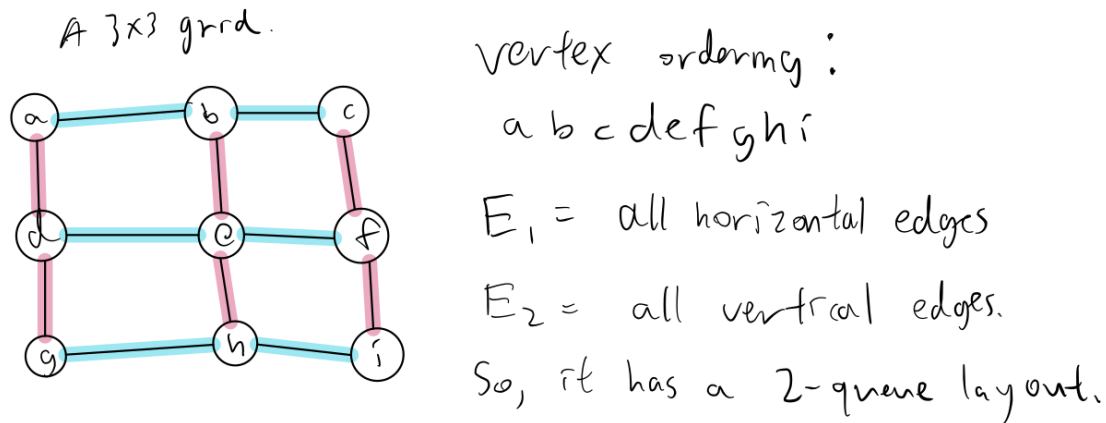 A 3x3 grid.
a b c
d e f
g h i
vertex ordering:
a b c d e f g h i
E₁ = all horizontal edges
E₂ = all vertical edges.
So, it has a 2-queue layout.